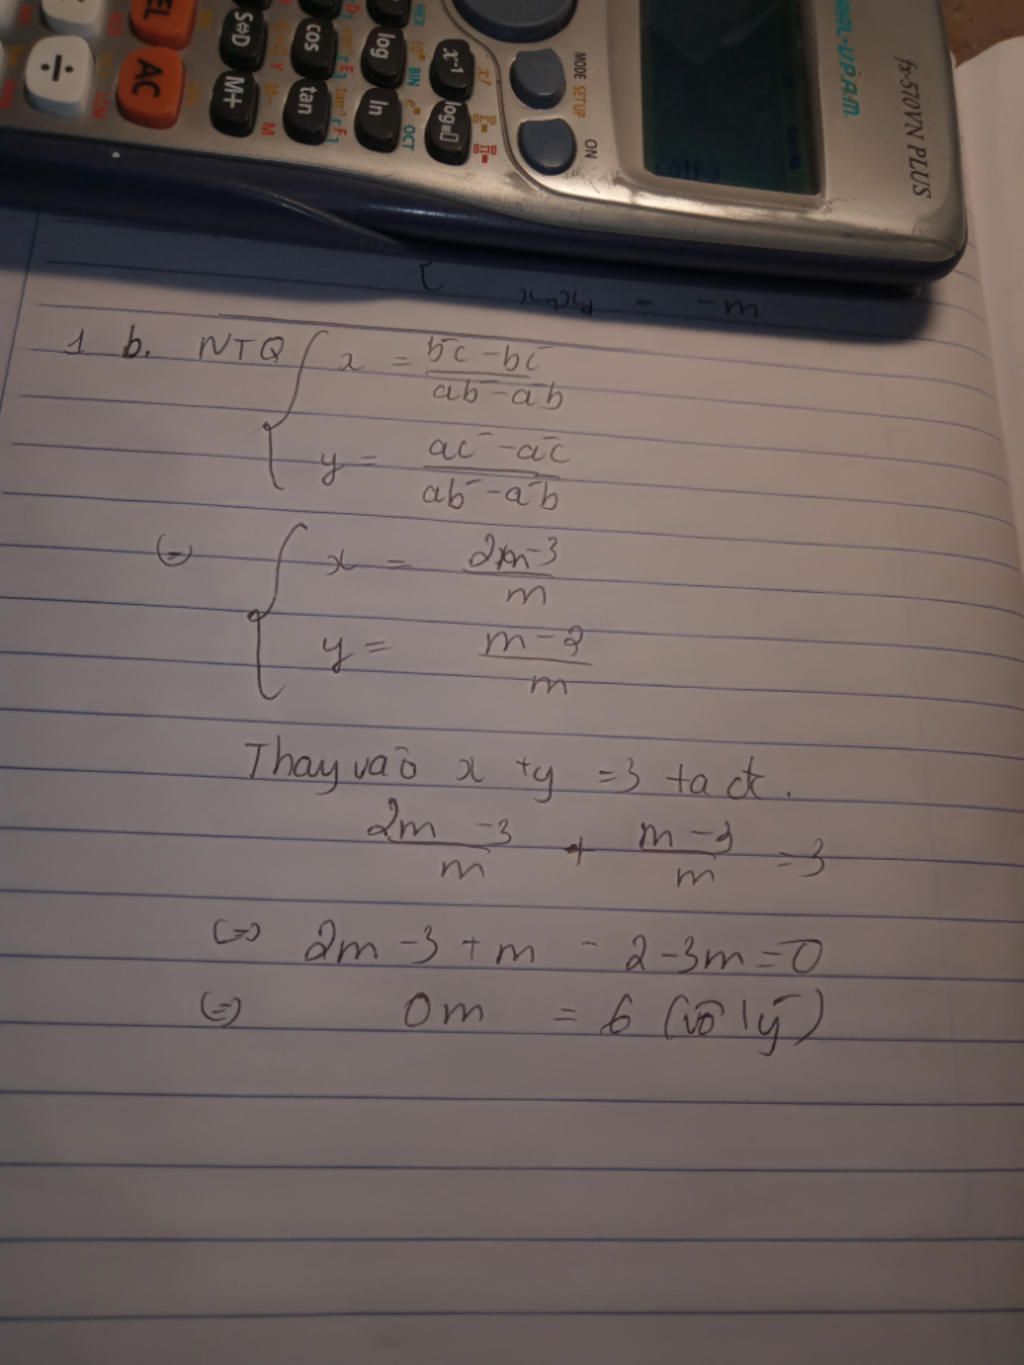 fx-570VN PLUS
MODE SETUP
ON
x⁻¹
log
ln
cos
tan
S⇔D
M+
AC
÷
HEX
BIN
OCT
1 b. NTQ { x = b'c - bc' / ab' - a'b
y = ac' - a'c / ab' - a'b
(=) { x = 2m - 3 / m
y = m - 3 / m
Thay vào x + y = 3 ta đc.
2m - 3 / m + m - 3 / m = 3
(=) 2m - 3 + m - 2 - 3m = 0
(=) 0m = 6 (vô lý)